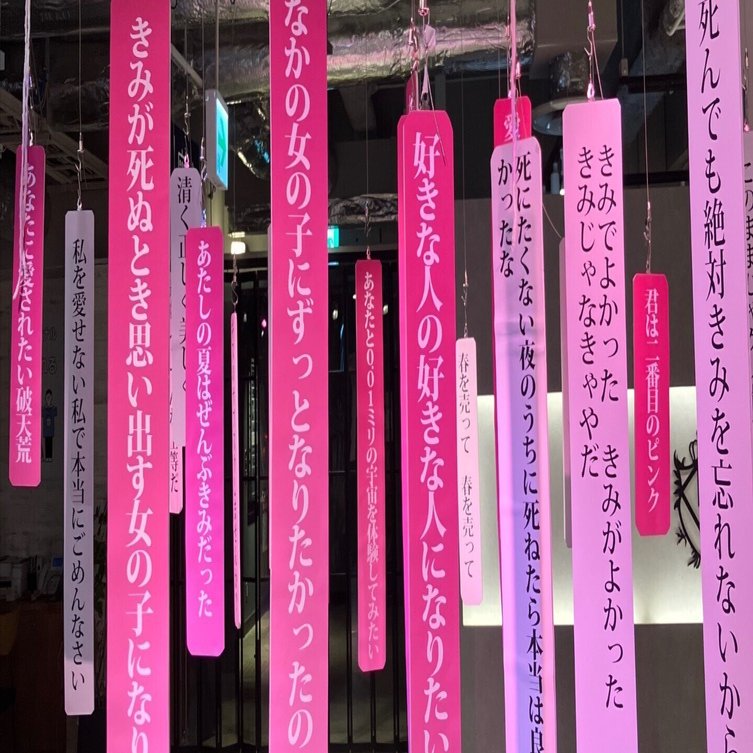 死んでも絶対きみを忘れないから
君は二番目のピンク
きみでよかった　きみがよかった
きみじゃなきゃやだ
愛
死にたくない夜のうちに死ねたら本当は良
かったな
春を売って　春を売って
好きな人の好きな人になりたい
あなたと0.01ミリの宇宙を体験してみたい
なかの女の子にずっとなりたかったの
あたしの夏はぜんぶきみだった
清く正しく美しく
等だ
きみが死ぬとき思い出す女の子になり
私を愛せない私で本当にごめんなさい
あなたに愛されたい破天荒